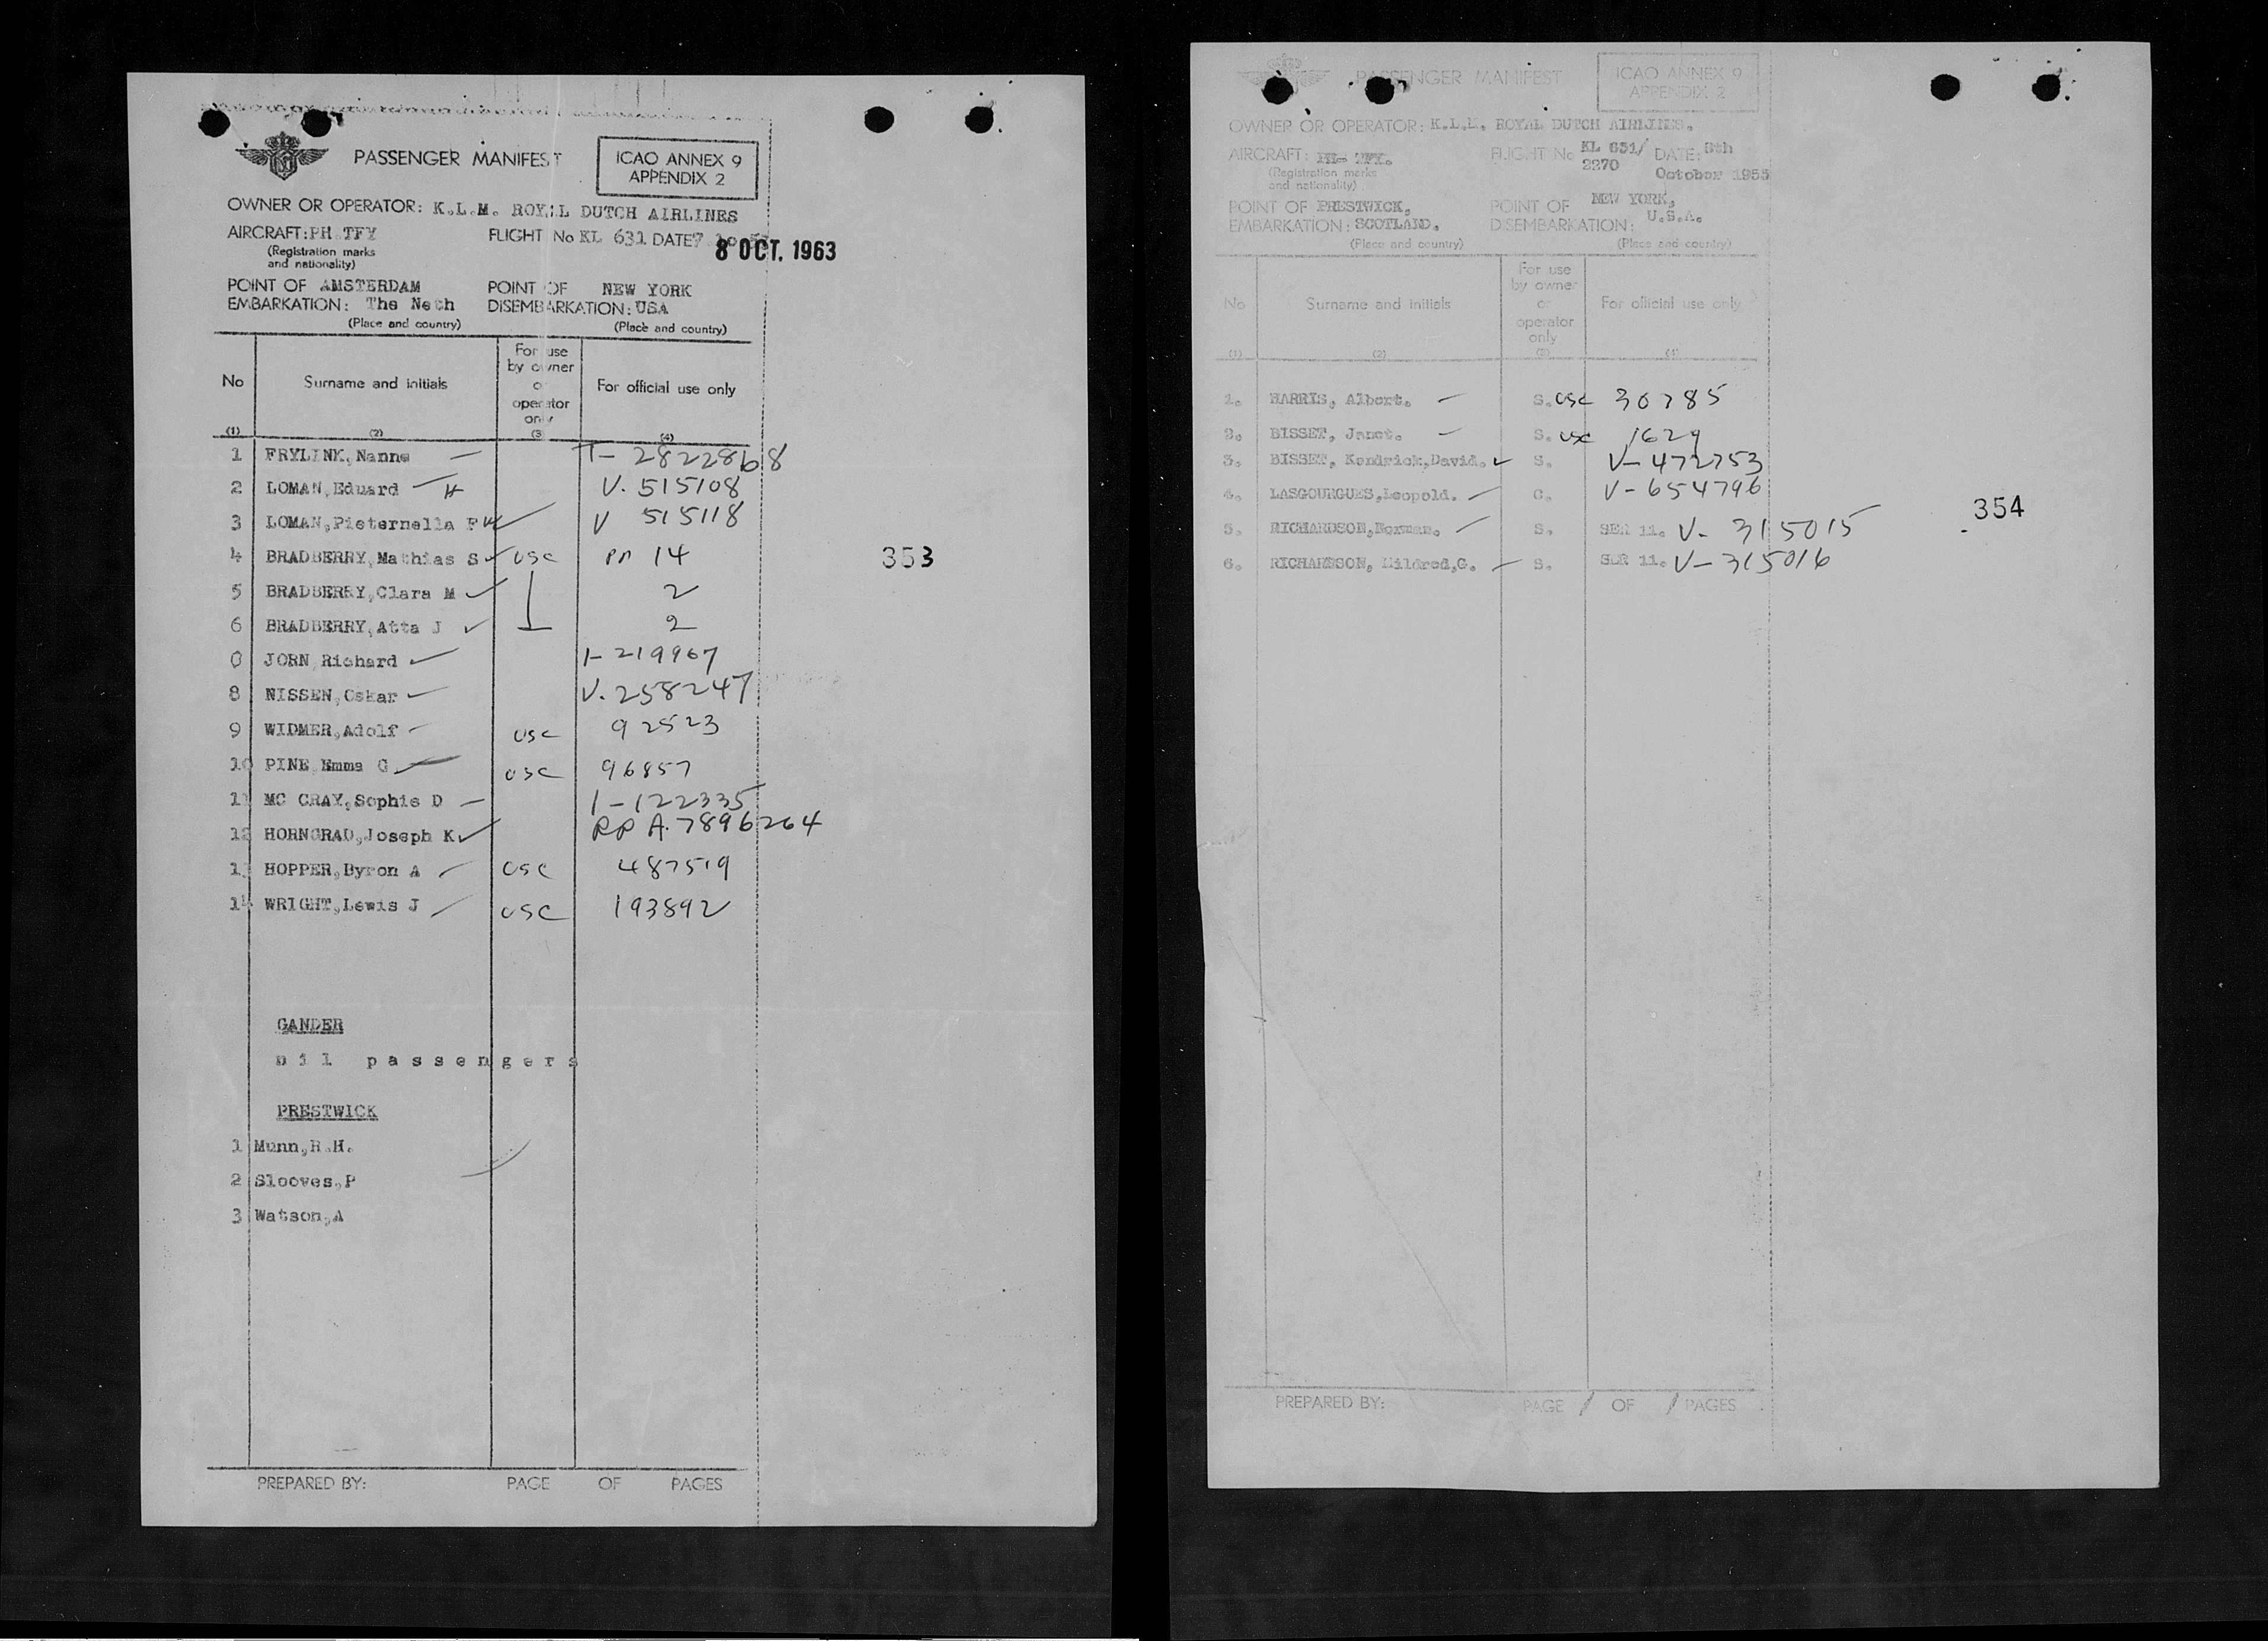 PASSENGER MANIFEST
ICAO ANNEX 9
APPENDIX 2
OWNER OR OPERATOR: K.L.M. ROYAL DUTCH AIRLINES
AIRCRAFT: PH.TFY FLIGHT No KL 631 DATE 7
(Registration marks
and nationality)
8 OCT. 1963
POINT OF AMSTERDAM POINT OF NEW YORK
EMBARKATION: The Neth DISEMBARKATION: USA
(Place and country) (Place and country)
No Surname and initials For use by owner or operator only For official use only
(1) (2) (3) (4)
1 FRYLINK, Nanne T- 2822868
2 LOMAN, Eduard V. 515108
3 LOMAN, Pieternella F V 515118
4 BRADBERRY, Mathias S USC PP 14
5 BRADBERRY, Clara M 2
6 BRADBERRY, Atta J 2
0 JORN, Richard 1-219967
8 NISSEN, Oskar V. 258247
9 WIDMER, Adolf USC 92523
10 PINE, Emma G USC 96857
11 MC CRAY, Sophie D 1-122335
12 HORNGRAD, Joseph K RP A. 7896264
13 HOPPER, Byron A USC 487519
14 WRIGHT, Lewis J USC 193892
353
GANDER
nil passengers
PRESTWICK
1 Munn, R.H.
2 Slooves, P
3 Watson, A
PREPARED BY: PAGE OF PAGES
PASSENGER MANIFEST
ICAO ANNEX 9
APPENDIX 2
OWNER OR OPERATOR: K.L.M. ROYAL DUTCH AIRLINES.
AIRCRAFT: TFY. FLIGHT No KL 631/2270 DATE: 8th October 1955
(Registration marks
and nationality)
POINT OF PRESTWICK, POINT OF NEW YORK,
EMBARKATION: SCOTLAND. DISEMBARKATION: U.S.A.
(Place and country) (Place and country)
No Surname and initials For use by owner or operator only For official use only
(1) (2) (3) (4)
1. HARRIS, Albert. S. USC 30785
2. BISSET, Janet. S. USC 1629
3. BISSET, Kendrick, David. S. V-472753
4. LASGOURGUES, Leopold. C. V-654796
5. RICHARDSON, Norman. S. SER 11. V- 315015
6. RICHARDSON, Mildred, G. S. SER 11. V-315016
354
PREPARED BY: PAGE / OF / PAGES